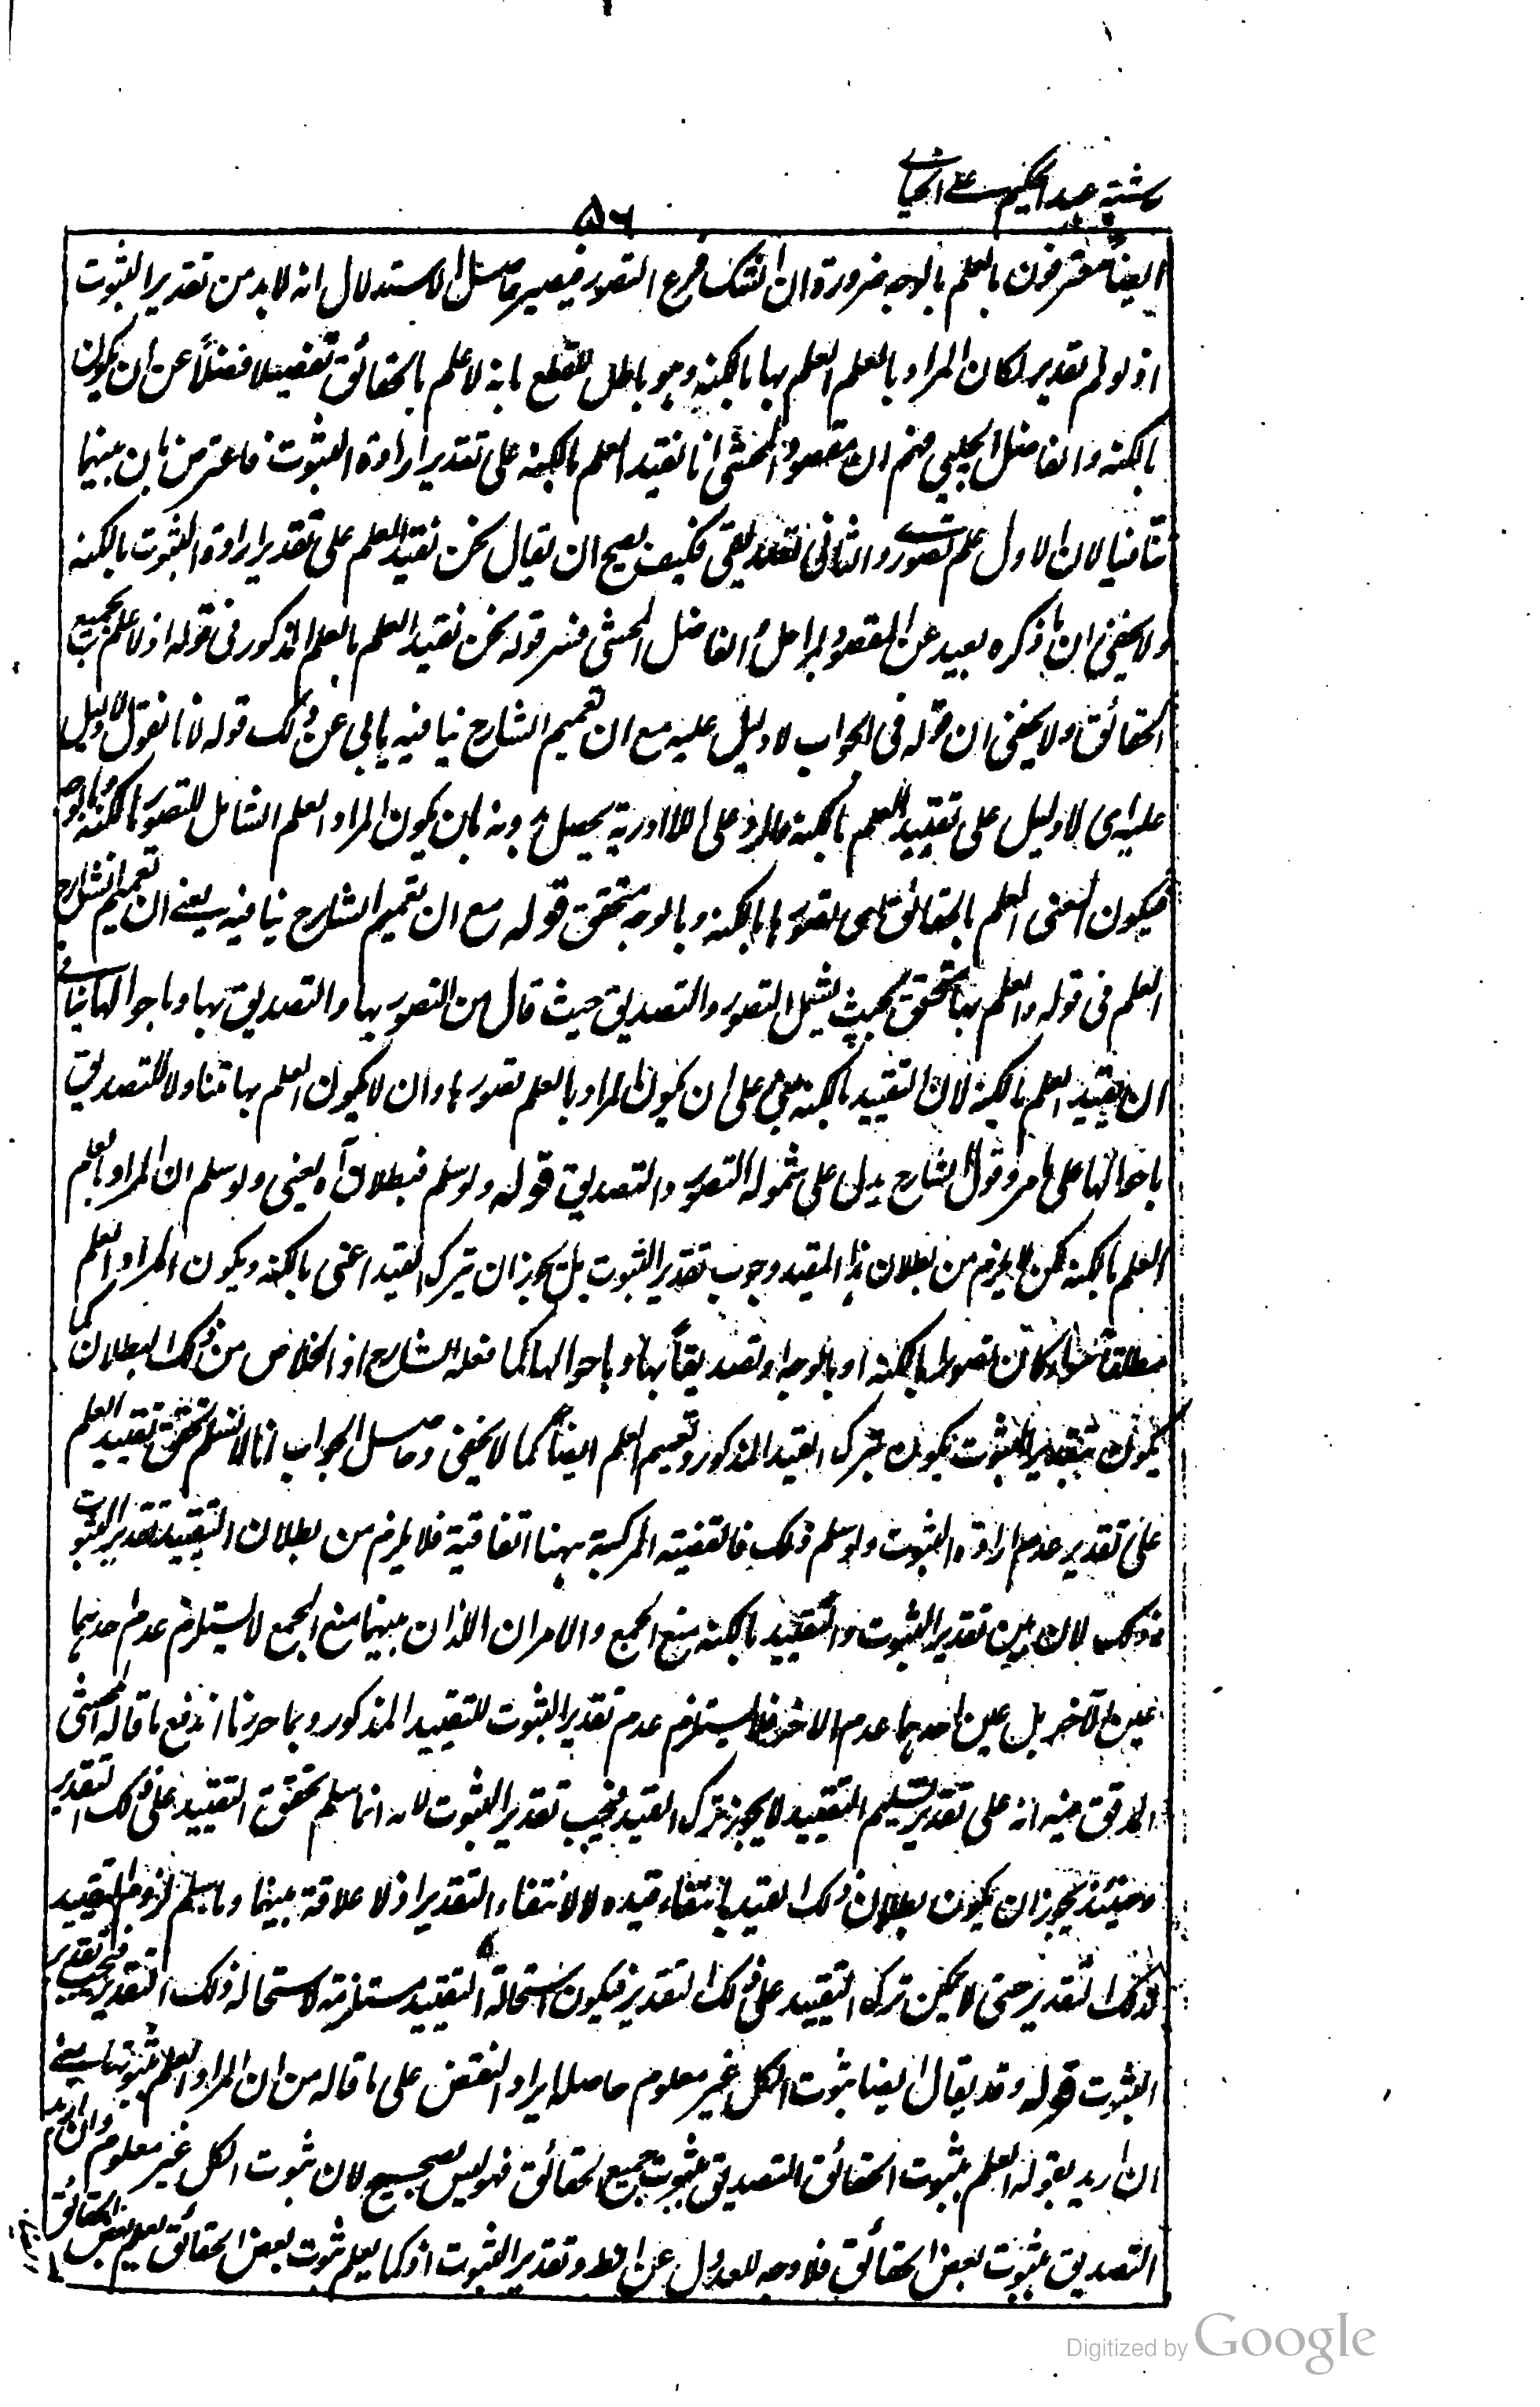 حاشية عبد الحكيم على الخيالي
٥٦
ايضا معترفون بالعلم بالوجه ضرورة ان الشك فرع التصور فيصير حاصل الاستدلال انه لا بد من تقدير الثبوت
اذ لو لم تقدير لكان المراد بالعلم العلم بها بالكنه وهو باطل للقطع بانه لا علم بالحقائق تفصيلا فضلاً عن ان يكون
بالكنه والفاضل الجلبي فهم ان مقصود المحشى انا نقيد العلم بالكنه على تقدير ارادة الثبوت فاعترض بان بينهما
تنافيا لان الاول علم تصوري والثاني تصديقي فكيف يصح ان يقال نحن نقيد العلم على تقدير ارادة الثبوت بالكنه
ولا يخفى ان ما ذكره بعيد عن المقصود بمراحل الفاضل المحشى فسر قوله نحن نقيد العلم بالعلم المذكور في قوله اذ لا علم بجميع
الحقائق ولا يخفى ان قوله في الجواب لا دليل عليه مع ان تعميم الشارح ينافيه يابى عن ذلك قوله لانا نقول لا دليل
عليه اى لا دليل على تقييد العلم بالكنه فالرد على اللاادرية يحصل بدونه بان يكون المراد العلم الشامل للتصور بالكنه وبالوجه
فيكون المعنى العلم بالحقائق اى تصورها بالكنه وبالوجه متحقق قوله مع ان تعميم الشارح ينافيه يعنى ان تعميم الشارح
العلم في قوله والعلم بها متحقق بحيث يشمل التصور والتصديق حيث قال من التصور بها والتصديق بها وباحوالها ينافي
ان يقيد العلم بالكنه لان التقييد بالكنه مبني على ان يكون المراد بالعلم تصورها وان لا يكون العلم بها متناولا للتصديق
باحوالها على ما مر وقول الشارح يدل على شموله التصور والتصديق قوله ولو سلم فبطلان آه يعنى ولو سلم ان المراد بالعلم
العلم بالكنه لكن لا يلزم من بطلان هذا المقيد وجوب تقدير الثبوت بل يجوز ان يترك القيد اعنى بالكنه ويكون المراد العلم
مطلقا سواء كان تصورا بالكنه او بالوجه او تصديقاً بها وباحوالها كما فعله الشارح اذ الخلاص من ذلك البطلان كما
يكون بتقدير الثبوت يكون بترك القيد المذكور وتعميم العلم ايضاً كما لا يخفى وحاصل الجواب انا لا نسلم تحقق تقييد العلم
على تقدير عدم ارادة الثبوت ولو سلم ذلك فالقضية المركبة ههنا اتفاقية فلا يلزم من بطلان التقييد تقدير الثبوت
وذلك لان بين تقدير الثبوت والتقييد بالكنه منع الجمع والامران اللذان بينهما منع الجمع لا يستلزم عدم احدهما
عين الآخر بل عين احدهما عدم الاخر فلا يستلزم عدم تقدير الثبوت للتقييد المذكور وبما حررنا اندفع ما قاله المحشى
المدقق فيه انه على تقدير تسليم التقييد لا يجوز ترك القيد فيجب تقدير الثبوت لانه انما سلم تحقق التقييد على ذلك التقدير
وحينئذ يجوز ان يكون بطلان ذلك القيد بانتفاء قيده لا لانتفاء التقدير اذ لا علاقة بينهما وما سلم لزوم التقييد
لذلك التقدير حتى لا يمكن ترك التقييد على ذلك التقدير فيكون استحالة التقييد مستلزمة لاستحالة ذلك التقدير فيجب تقدير
الثبوت قوله وقد يقال ايضا ثبوت الكل غير معلوم حاصله ايراد النقض على ما قاله من ان المراد العلم بثبوتها يعنى
ان اريد بقوله العلم بثبوت الحقائق التصديق بثبوت جميع الحقائق فهو ليس بصحيح لان ثبوت الكل غير معلوم وان اريد
التصديق بثبوت بعض الحقائق فلا وجه للعدول عن الظ وتقدير الثبوت اذ كما يعلم ثبوت بعض الحقائق يعلم بعض الحقائق